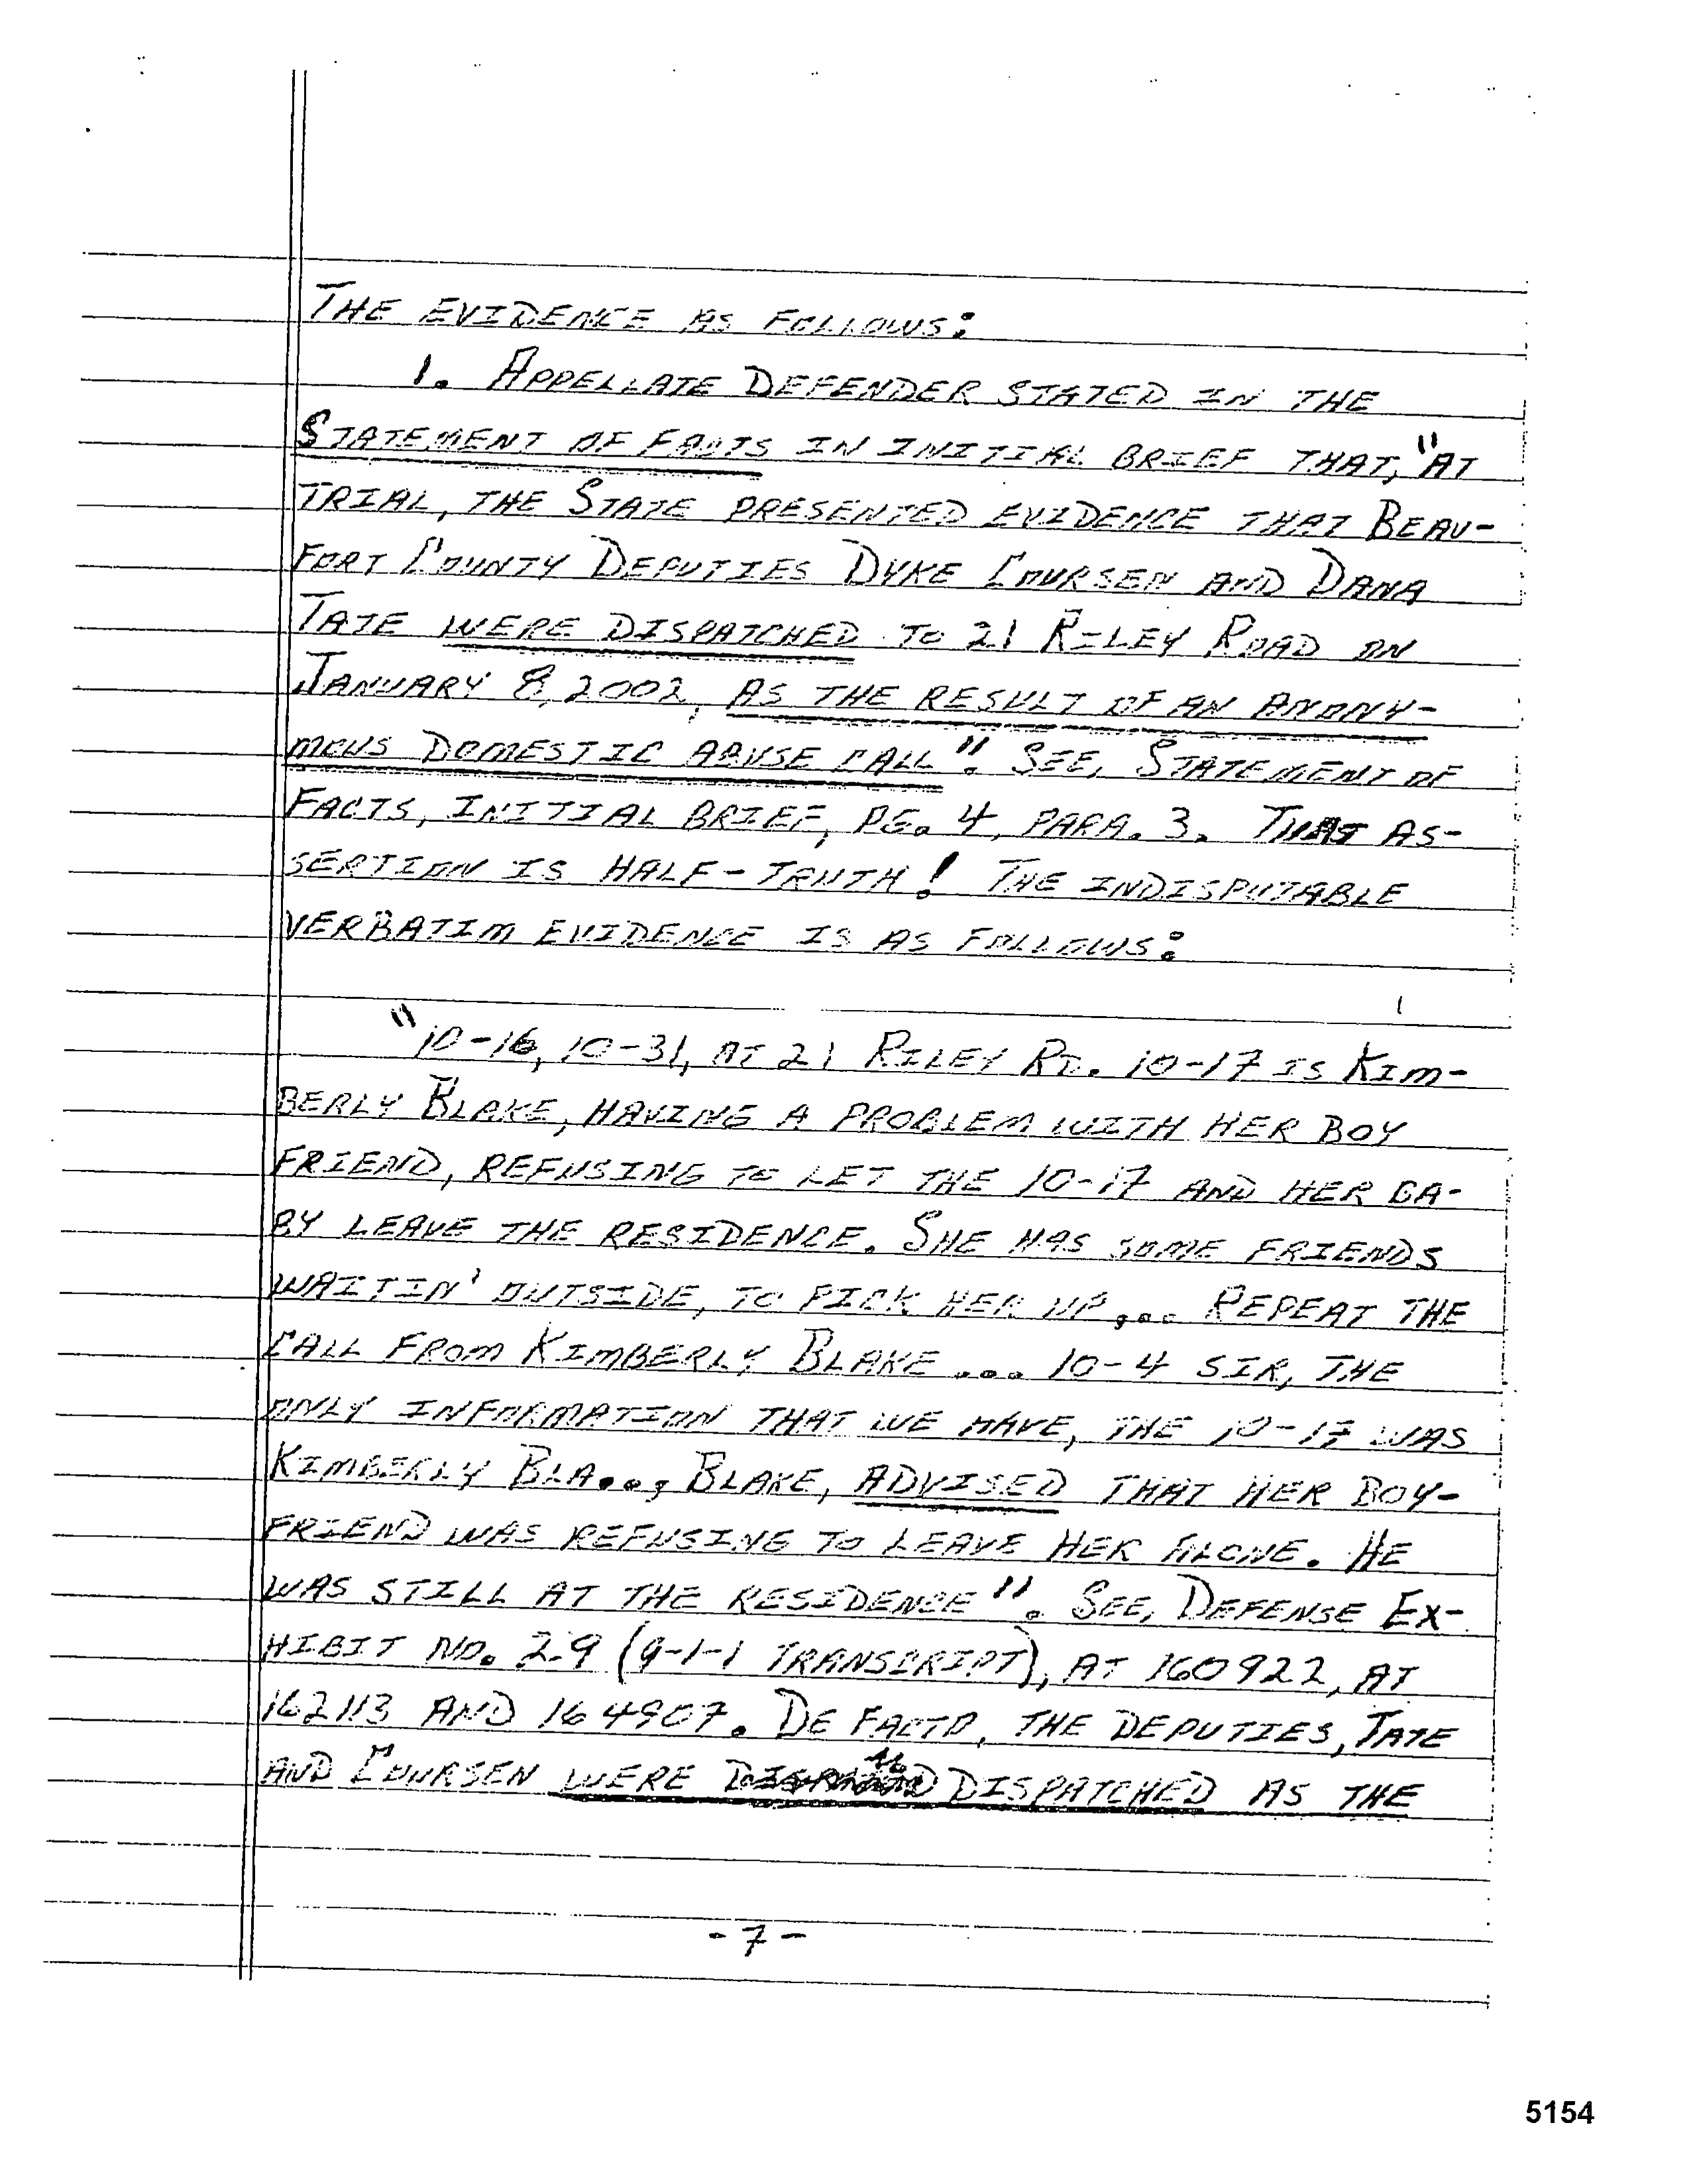 THE EVIDENCE AS FOLLOWS:
1. APPELLATE DEFENDER STATED IN THE
STATEMENT OF FACTS IN INITIAL BRIEF THAT, "AT
TRIAL, THE STATE PRESENTED EVIDENCE THAT BEAU-
FORT COUNTY DEPUTIES DYKE COURSEN AND DANA
TATE WERE DISPATCHED TO 21 RILEY ROAD ON
JANUARY 8, 2002, AS THE RESULT OF AN ANONY-
MOUS DOMESTIC ABUSE CALL". SEE, STATEMENT OF
FACTS, INITIAL BRIEF, PG. 4, PARA. 3. THAT AS-
SERTION IS HALF-TRUTH! THE INDISPUTABLE
VERBATIM EVIDENCE IS AS FOLLOWS:
"10-16, 10-31, AT 21 RILEY RD. 10-17 IS KIM-
BERLY BLAKE, HAVING A PROBLEM WITH HER BOY
FRIEND, REFUSING TO LET THE 10-17 AND HER BA-
BY LEAVE THE RESIDENCE. SHE HAS SOME FRIENDS
WAITIN' OUTSIDE, TO PICK HER UP,... REPEAT THE
CALL FROM KIMBERLY BLAKE ... 10-4 SIR, THE
ONLY INFORMATION THAT WE HAVE, THE 10-17 WAS
KIMBERLY BLA.., BLAKE, ADVISED THAT HER BOY-
FRIEND WAS REFUSING TO LEAVE HER ALONE. HE
WAS STILL AT THE RESIDENCE". SEE, DEFENSE EX-
HIBIT NO. 29 (9-1-1 TRANSCRIPT), AT 160922, AT
162113 AND 164907. DE FACTO, THE DEPUTIES, TATE
AND COURSEN WERE DISPATCHED AS THE
-7-
5154